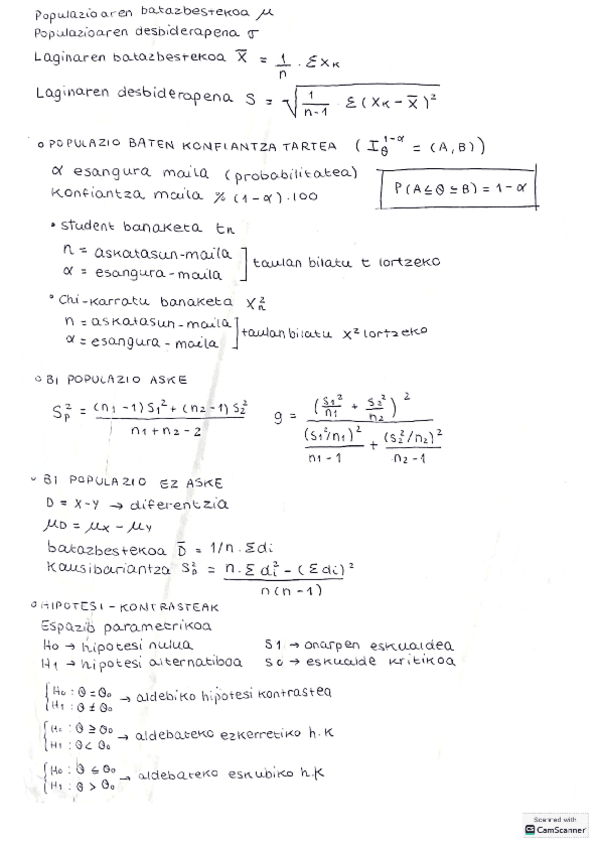 Populazioaren batazbestekoa μ
Populazioaren desbiderapena σ
Laginaren batazbestekoa X̄ = 1/n · Σxₖ
Laginaren desbiderapena S = √(1/(n-1) · Σ(xₖ - x̄)²)
○ POPULAZIO BATEN KONFIANTZA TARTEA (I_θ^(1-α) = (A,B))
α esangura maila (probabilitatea)
Konfiantza maila % (1-α)·100
P(A≤θ≤B) = 1-α
• Student banaketa tₙ
n = askatasun-maila
α = esangura-maila
] taulan bilatu t lortzeko
• Chi-karratu banaketa Xₙ²
n = askatasun-maila
α = esangura-maila
] taulan bilatu X² lortzeko
○ BI POPULAZIO ASKE
Sp² = ((n₁-1)S₁² + (n₂-1)S₂²) / (n₁+n₂-2)
g = (S₁²/n₁ + S₂²/n₂)² / ((S₁²/n₁)²/(n₁-1) + (S₂²/n₂)²/(n₂-1))
○ BI POPULAZIO EZ ASKE
D = X-Y → diferentzia
μD = μx - μy
batazbestekoa D̄ = 1/n · Σdi
Kausibariantza S_D² = (n·Σdi² - (Σdi)²) / (n(n-1))
○ HIPOTESI-KONTRASTEAK
Espazio parametrikoa
H₀ → hipotesi nulua S1 → onarpen eskualdea
H₁ → hipotesi alternatiboa S0 → eskualde kritikoa
{ H₀ : θ = θ₀
H₁ : θ ≠ θ₀ → aldebiko hipotesi kontrastea
{ H₀ : θ ≥ θ₀
H₁ : θ < θ₀ → aldebateko ezkerretiko h.k
{ H₀ : θ ≤ θ₀
H₁ : θ > θ₀ → aldebateko eskubiko h.k
Scanned with
CamScanner